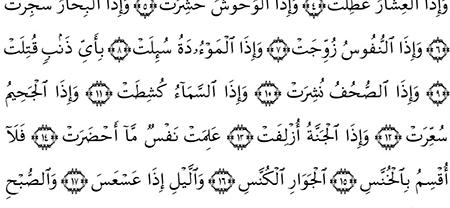 وَإِذَا ٱلۡعِشَارُ عُطِّلَتۡ ﴿٤﴾ وَإِذَا ٱلۡوُحُوشُ حُشِرَتۡ ﴿٥﴾ وَإِذَا ٱلۡبِحَارُ سُجِّرَتۡ
﴿٦﴾ وَإِذَا ٱلنُّفُوسُ زُوِّجَتۡ ﴿٧﴾ وَإِذَا ٱلۡمَوۡءُۥدَةُ سُئِلَتۡ ﴿٨﴾ بِأَيِّ ذَنۢبٖ قُتِلَتۡ
﴿٩﴾ وَإِذَا ٱلصُّحُفُ نُشِرَتۡ ﴿١٠﴾ وَإِذَا ٱلسَّمَآءُ كُشِطَتۡ ﴿١١﴾ وَإِذَا ٱلۡجَحِيمُ
سُعِّرَتۡ ﴿١٢﴾ وَإِذَا ٱلۡجَنَّةُ أُزۡلِفَتۡ ﴿١٣﴾ عَلِمَتۡ نَفۡسٞ مَّآ أَحۡضَرَتۡ ﴿١٤﴾ فَلَآ
أُقۡسِمُ بِٱلۡخُنَّسِ ﴿١٥﴾ ٱلۡجَوَارِ ٱلۡكُنَّسِ ﴿١٦﴾ وَٱلَّيۡلِ إِذَا عَسۡعَسَ ﴿١٧﴾ وَٱلصُّبۡحِ